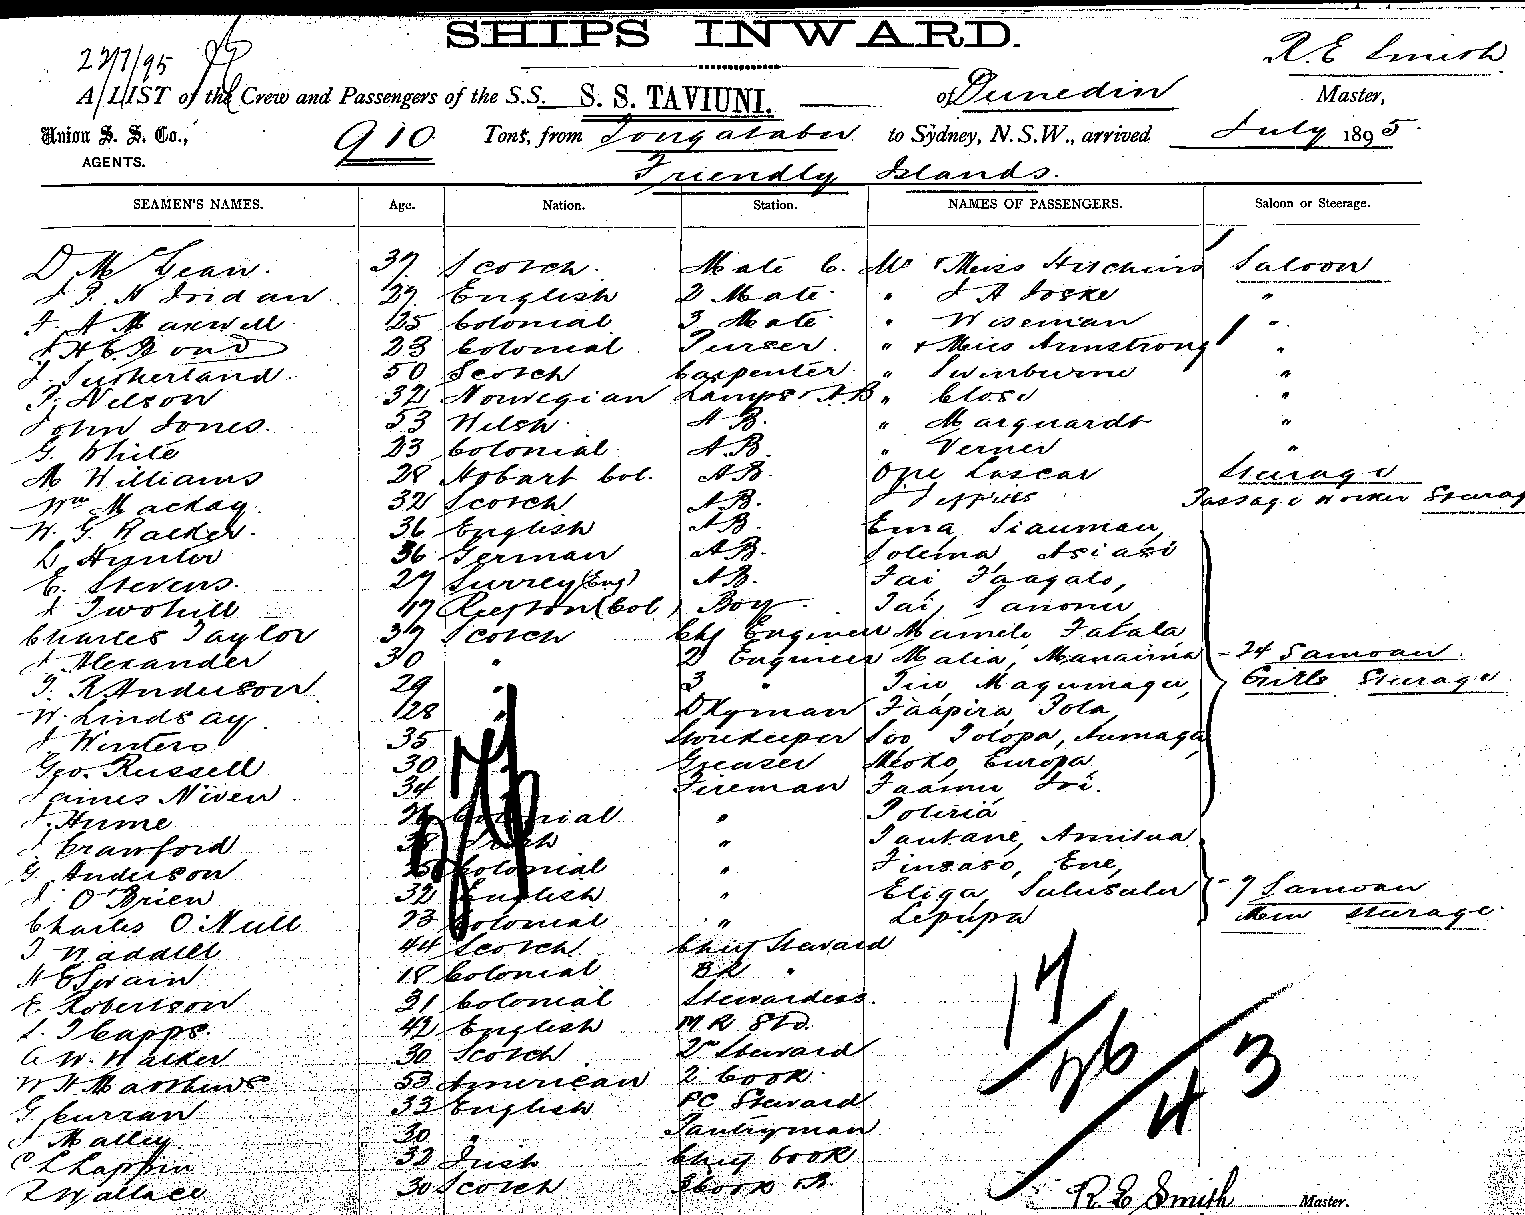 SHIPS INWARD.
23/7/95
R. E Smith
A LIST of the Crew and Passengers of the S.S. S. S. TAVIUNI. of Dunedin Master,
Union S. S. Co., 910 Tons, from Tongatabu to Sydney, N.S.W., arrived July 1895.
AGENTS.
Friendly Islands.
SEAMEN'S NAMES. Age. Nation. Station. NAMES OF PASSENGERS. Saloon or Steerage.
D McLean. 37 Scotch. Mate C. Mr & Miss Hitchins Saloon
27 English 2 Mate " J A Joske "
J. A Maxwell 25 Colonial 3 Mate " Wiseman "
23 Colonial Purser. " & Miss Armstrong "
J Sutherland 50 Scotch Carpenter " Swinburne "
P. Nelson 32 Norwegian Lamps & AB " Close "
John Jones. 53 Welsh AB. " Marquardt "
G. White 23 Colonial AB. " Verner "
M Williams 28 Hobart Col. AB Ope Lascar Steerage
Wm Mackay. 32 Scotch AB. Jeffries Passage worker Steerage
W. G. 36 English AB. Ema, Siaumau,
L. Hunter 36 German AB. Solema Asiasi
E. Stevens. 27 Surrey (Eng) AB. Fai Faagalo,
J Twohill 17 Reefton (Col) Boy. Tai, Sanonu,
Charles Taylor 37 Scotch Chf Engineer Mameli Fatala,
J Alexander 30 " 2 Engineer Malia, Manaima - 24 Samoan
T. R. Anderson 29 " 3 " Tiu Magumagu, Girls Steerage
W. Lindsay 28 " Dkyman Faapira, Tola,
J Winters 35 Storekeeper Soo Tolopa, Aumaga,
Geo. Russell 30 Greaser Meoko, Europa,
James Niven 34 Fireman Faamu Ioi.
J. Hume Colonial " Poliria
J Crawford 38 Irish " Tautane, Amitua
G. Anderson Colonial " Finsaso, Ene,
J. O'Brien 32 English " Eliga, Salusalu - 9 Samoan
Charles O'Neill 23 Colonial " Lepupa Men Steerage.
T Waddell 44 Scotch Chief Steward
H E Swain 18 Colonial BR "
E. Robertson 31 Colonial Stewardess.
S. T Capps. 42 English MR Std.
A. W. Walker 30 Scotch 2nd Steward
W H Matthews 53 American 2 Cook.
G Curran 33 English FC Steward
J Malley 30 " Pantryman
32 Irish Chief Cook
R Wallace 30 Scotch 3 Cook
17/26/43
R. E Smith Master.